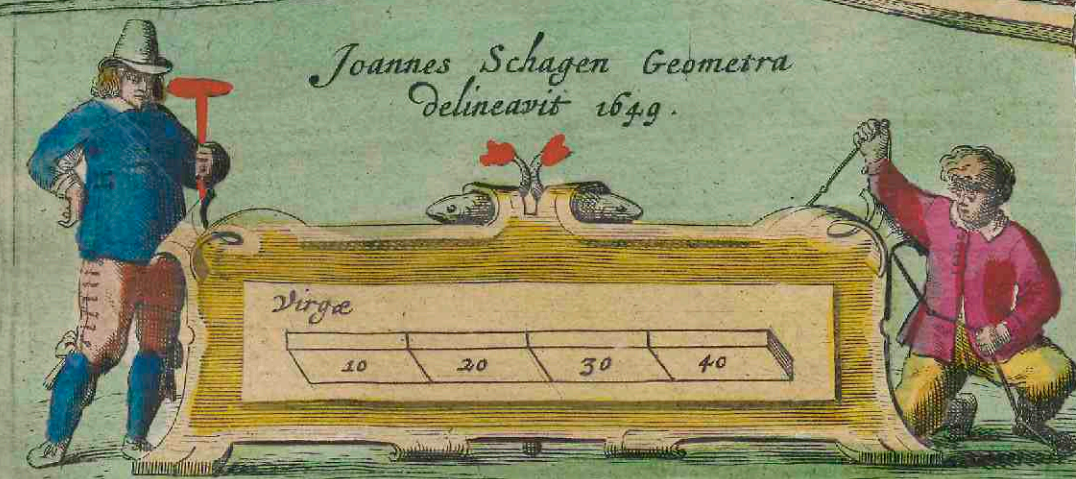 Joannes Schagen Geometra
delineavit 1649.
Virgæ
10 20 30 40